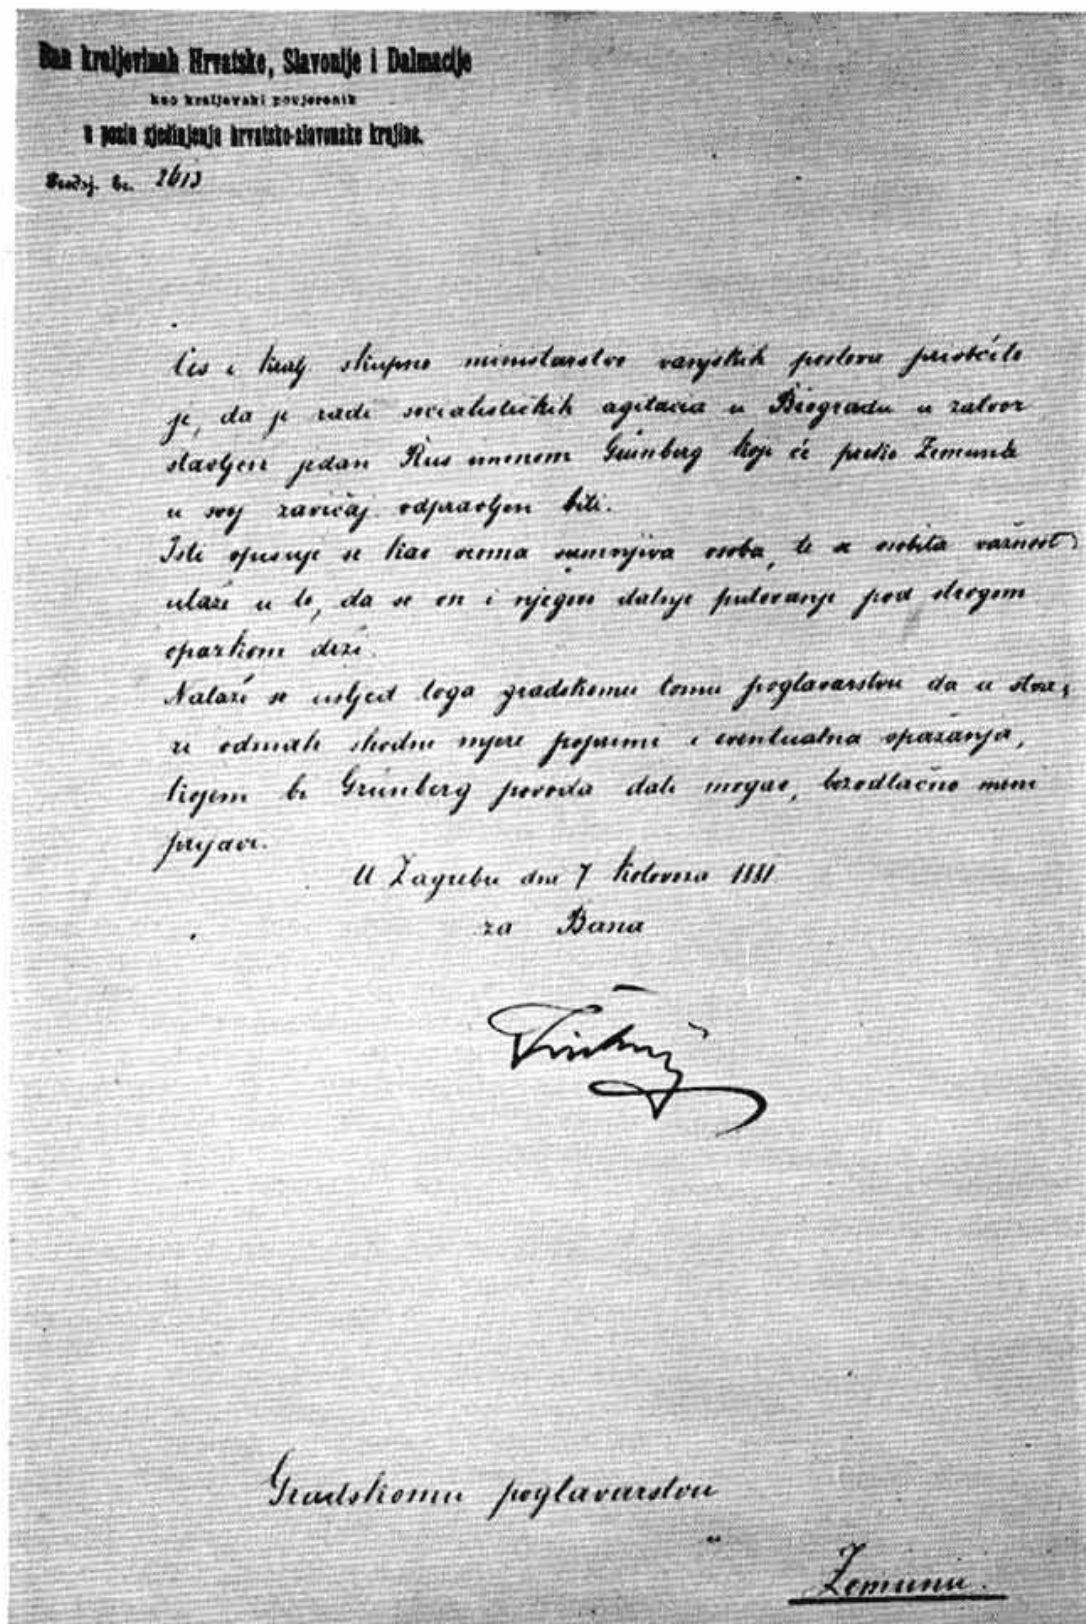 Ban kraljevinah Hrvatske, Slavonije i Dalmacije
kao kraljevski povjerenik
u poslu sjedinjenja hrvatsko-slavonske krajine.
Predsj. br. 2613
Ces i kralj skupno ministarstvo vanjskih poslova priobćilo
je, da je radi socialističkih agitacia u Biogradu u zatvor
stavljen jedan Rus imenom Grünberg koji će preko Zemuna
u svoj zavičaj odpravljen biti.
Isti opisuje se kao veoma sumnjiva osoba, te se osobita važnost
ulaže u to, da se on i njegovo dalnje putovanje pod strogom
opazkom drži.
Nalaže se usljed toga gradskomu tomu poglavarstvu da u
odmah shodne mjere poprimi i eventualna opažanja,
kojem bi Grünberg povoda dati mogao, bezodlačno meni
prijavi.
U Zagrebu dne 7 kolovoza 1881
za Bana
Gradskomu poglavarstvu
u
Zemunu.